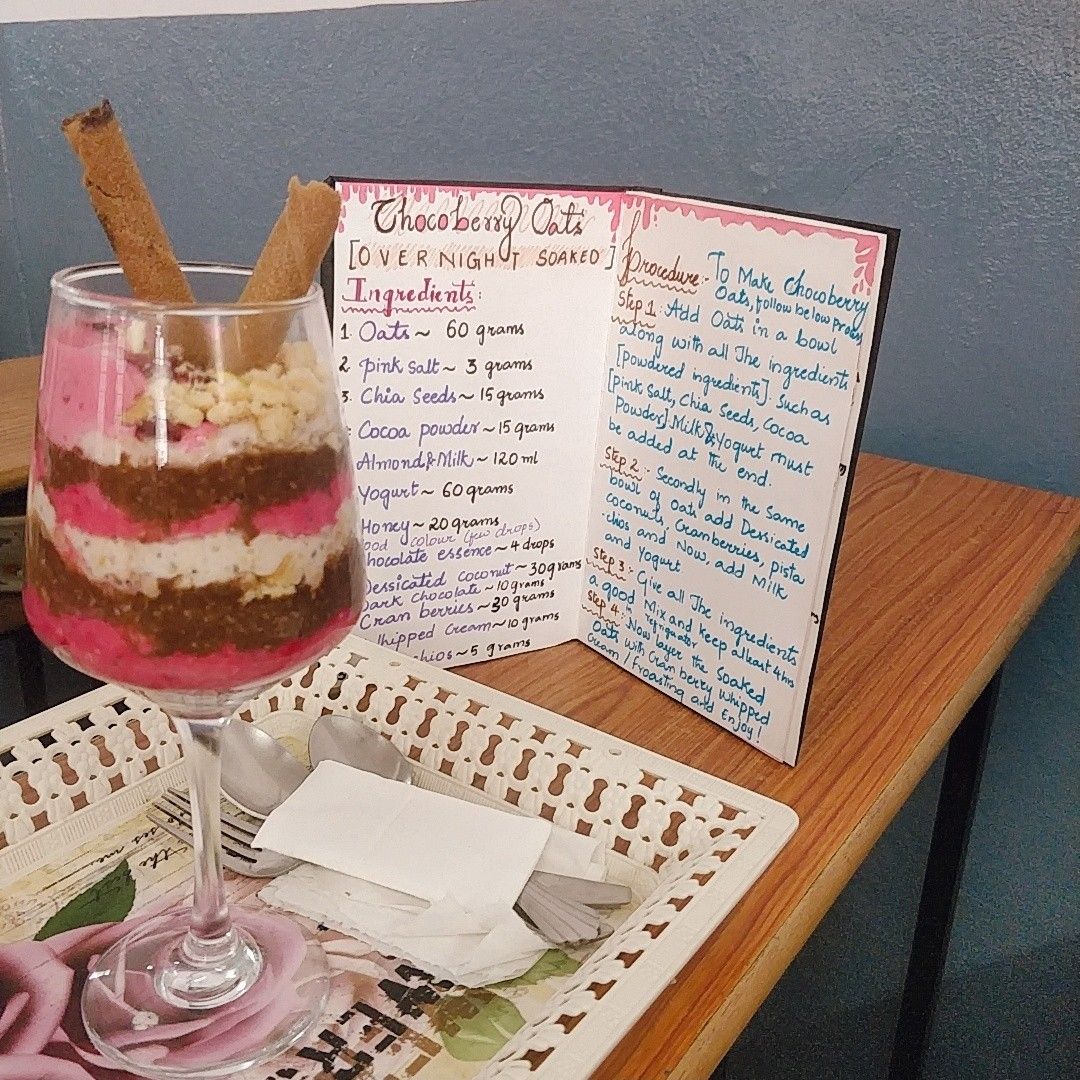 Chocoberry Oats
[OVERNIGHT SOAKED]
Ingredients:
1. Oats ~ 60 grams
2 pink salt ~ 3 grams
3. Chia Seeds ~ 15 grams
Cocoa powder ~ 15 grams
Almond & Milk ~ 120 ml
Yogurt ~ 60 grams
Honey ~ 20 grams
ood colour (few drops)
hocolate essence ~ 4 drops
Dessicated coconut ~ 30 grams
Dark chocolate ~ 10 grams
Cran berries ~ 30 grams
hipped cream ~ 10 grams
chios ~ 5 grams
Procedure:- To Make Chocoberry
Oats, follow below process
Step 1: Add Oats in a bowl
along with all The ingredients
[Powdered ingredients]. Such as
[pink Salt, Chia Seeds, Cocoa
Powder] Milk & Yogurt must
be added at The end.
Step 2:- Secondly in the same
bowl of oats add Dessicated
coconuts, Cranberries, pista
-chios and Now, add Milk
and Yogurt
Step 3:- Give all The ingredients
a good Mix and keep atleast 4 hrs
in refrigirator
Step 4:- Now Layer the Soaked
Oats with Cran berry whipped
cream / Froasting and Enjoy!
the